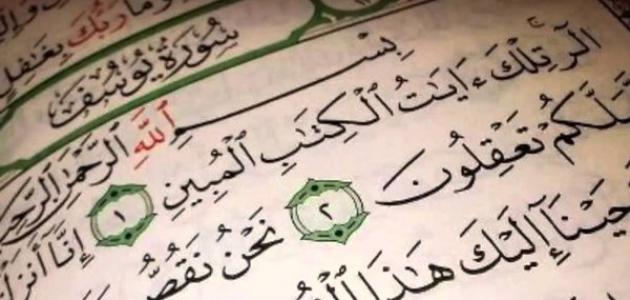 وَمَا رَبُّكَ بِغَٰفِلٍ
سُورَةُ يُوسُفَ
بِسْمِ ٱللَّهِ ٱلرَّحْمَٰنِ ٱلرَّحِي
الٓر تِلْكَ ءَايَٰتُ ٱلْكِتَٰبِ ٱلْمُبِينِ ١ إِنَّآ أَنزَ
لَّكُمْ تَعْقِلُونَ ٢ نَحْنُ نَقُصُّ
حَيْنَآ إِلَيْكَ هَٰذَا